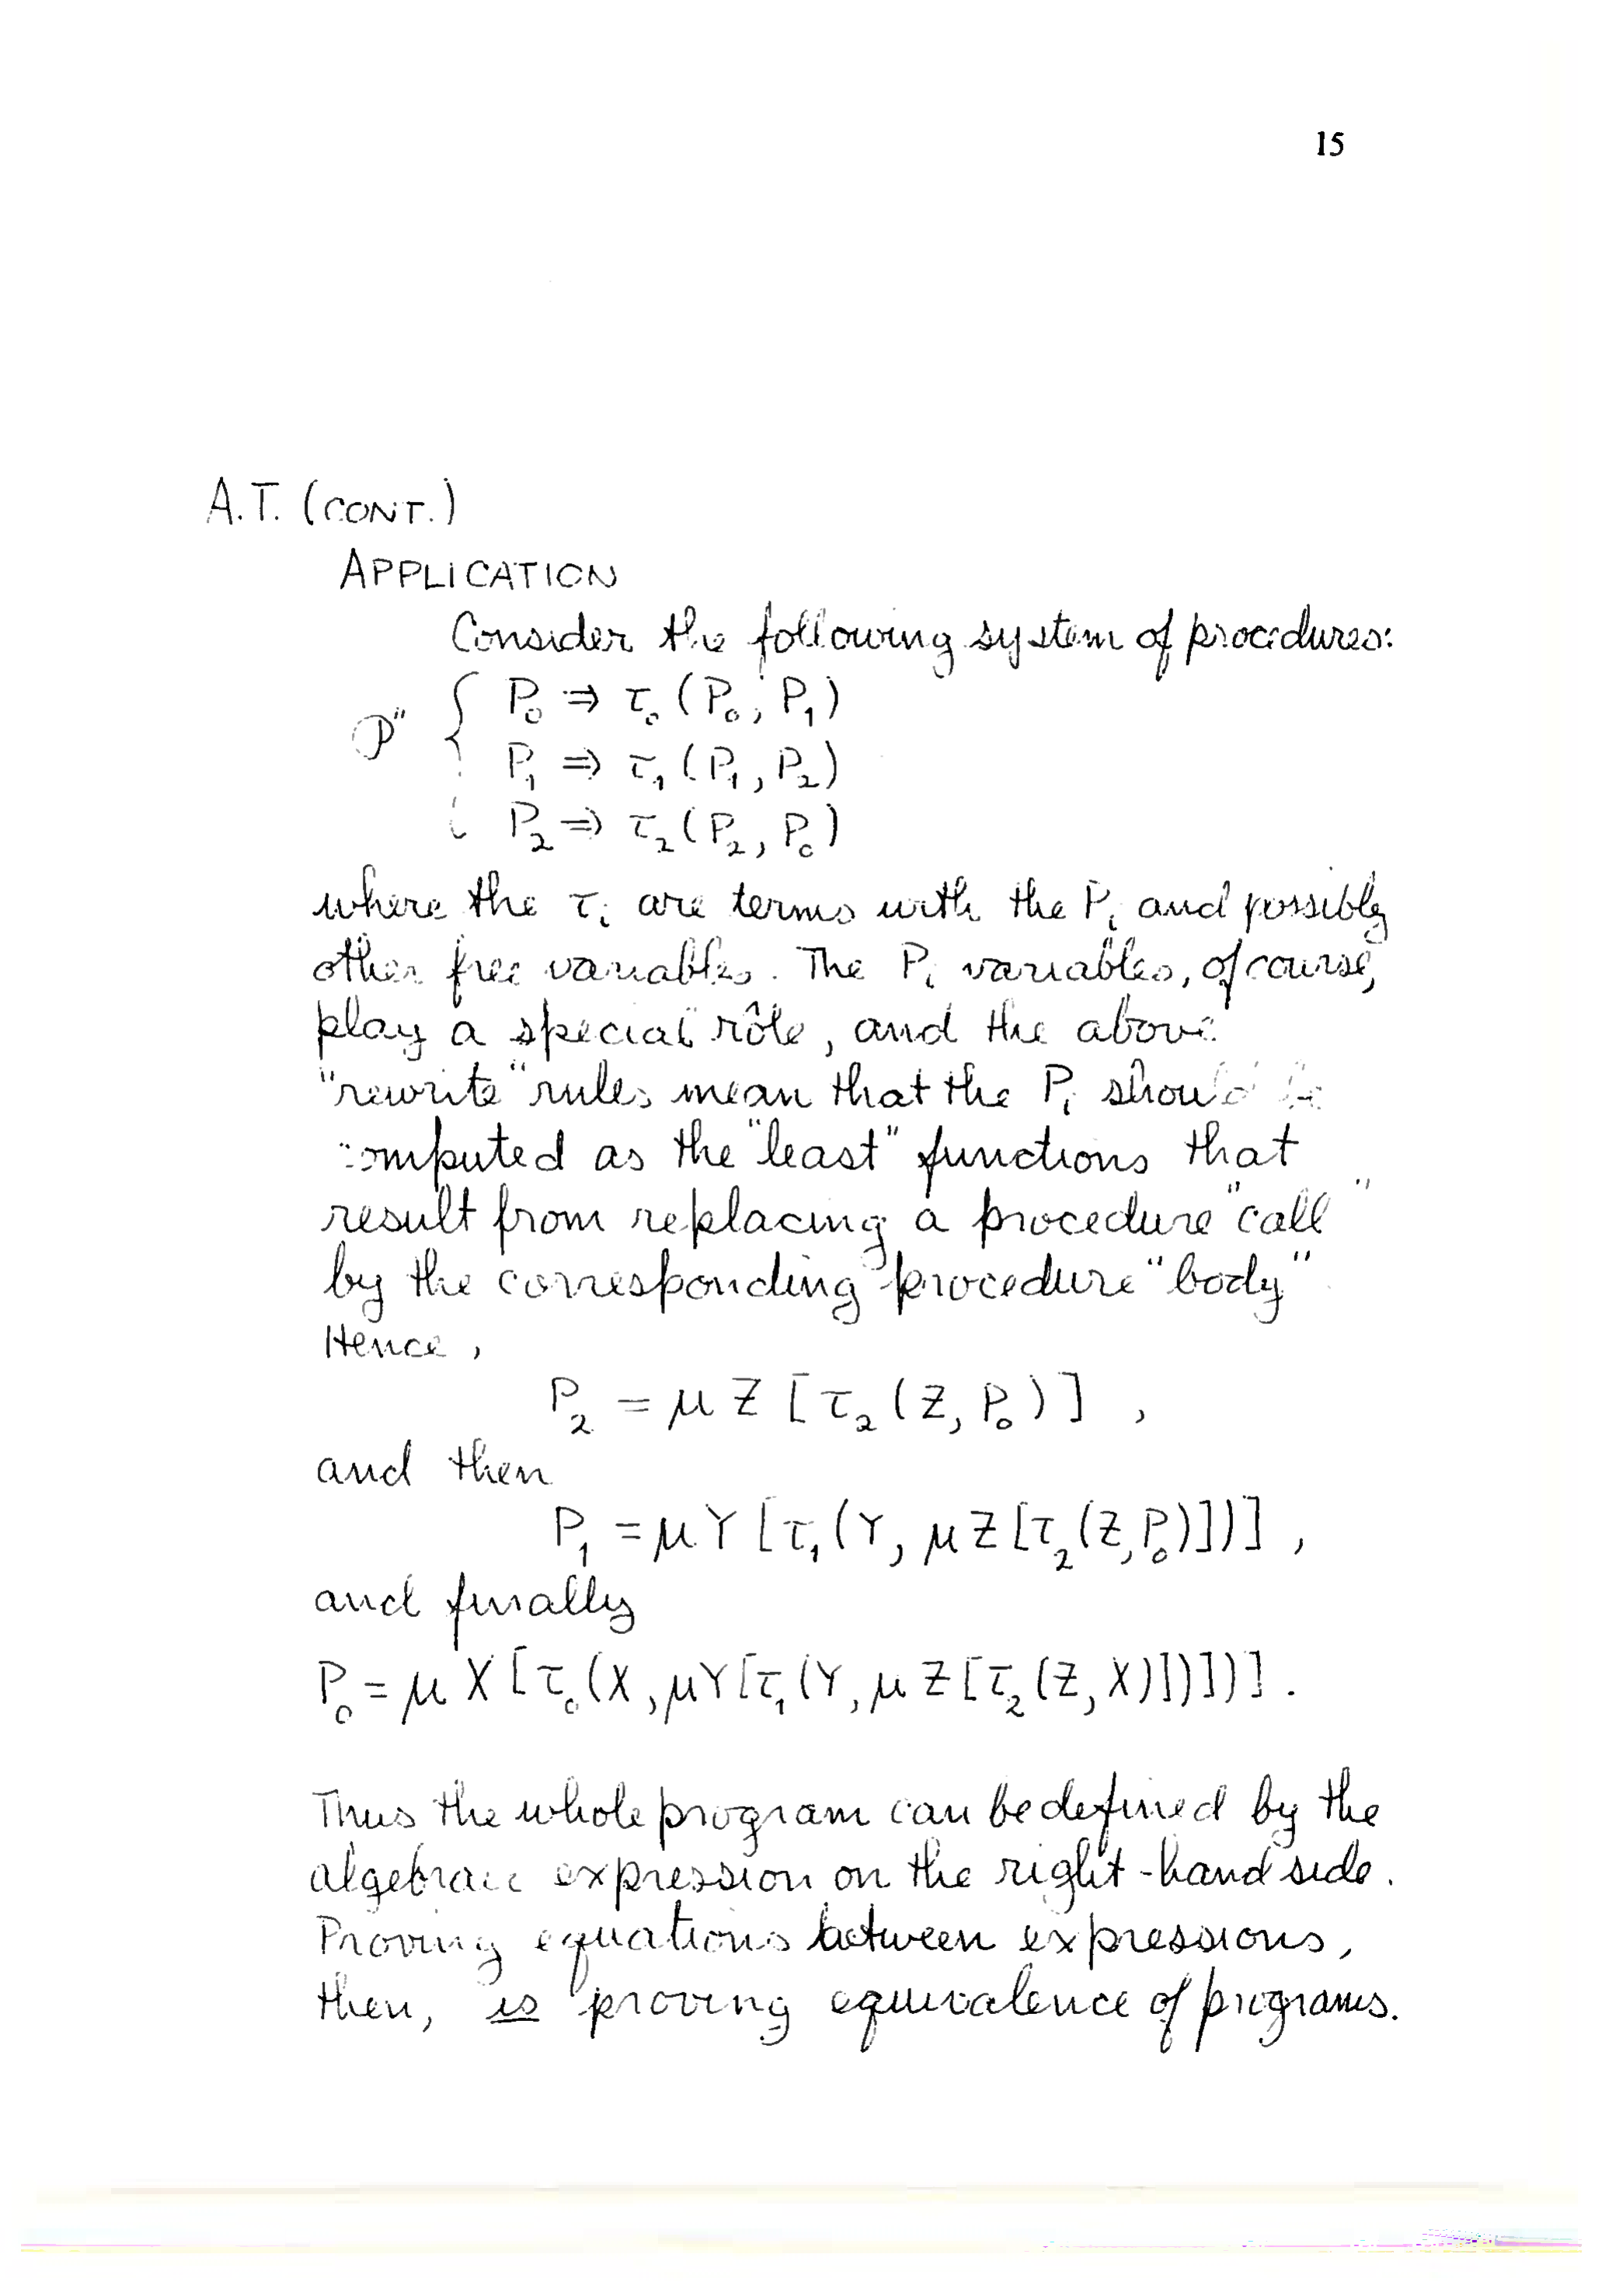 15
A.T. (CONT.)
APPLICATION
Consider the following system of procedures:
P₀ ⇒ τ₀ (P₀, P₁)
𝒫" { P₁ ⇒ τ₁ (P₁, P₂)
P₂ ⇒ τ₂ (P₂, P₀)
where the τᵢ are terms with the Pᵢ and possibly
other free variables. The Pᵢ variables, of course,
play a special rôle, and the above
"rewrite" rules mean that the Pᵢ should be
computed as the "least" functions that
result from replacing a procedure "call"
by the corresponding procedure "body"
Hence,
P₂ = μ Z [ τ₂ ( Z, P₀ ) ] ,
and then
P₁ = μ Y [ τ₁ ( Y, μ Z [ τ₂ ( Z, P₀ ) ] ) ] ,
and finally
P₀ = μ X [ τ₀ ( X, μ Y [ τ₁ ( Y, μ Z [ τ₂ ( Z, X ) ] ) ] ) ] .
Thus the whole program can be defined by the
algebraic expression on the right-hand side.
Proving equations between expressions,
then, is proving equivalence of programs.